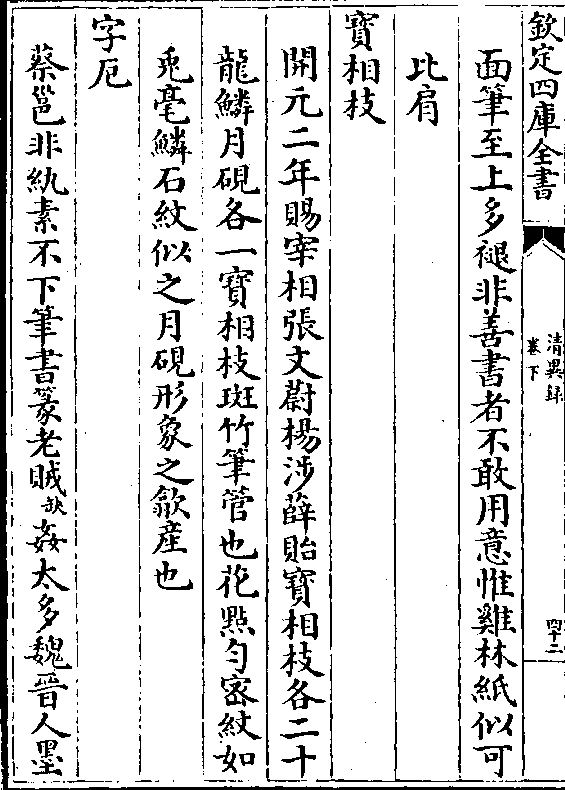 欽定四庫全書
清異録
卷下
四十二
面筆至上多褪非善書者不敢用意惟雞林紙似可
比肩
寶相枝
開元二年賜宰相張文蔚楊涉薛貽寶相枝各二十
龍鱗月硯各一寶相枝斑竹筆管也花㸃勻密紋如
兎毫鱗石紋似之月硯形象之歙産也
字厄
蔡邕非紈素不下筆書篆老賊缺姦太多魏晉人墨